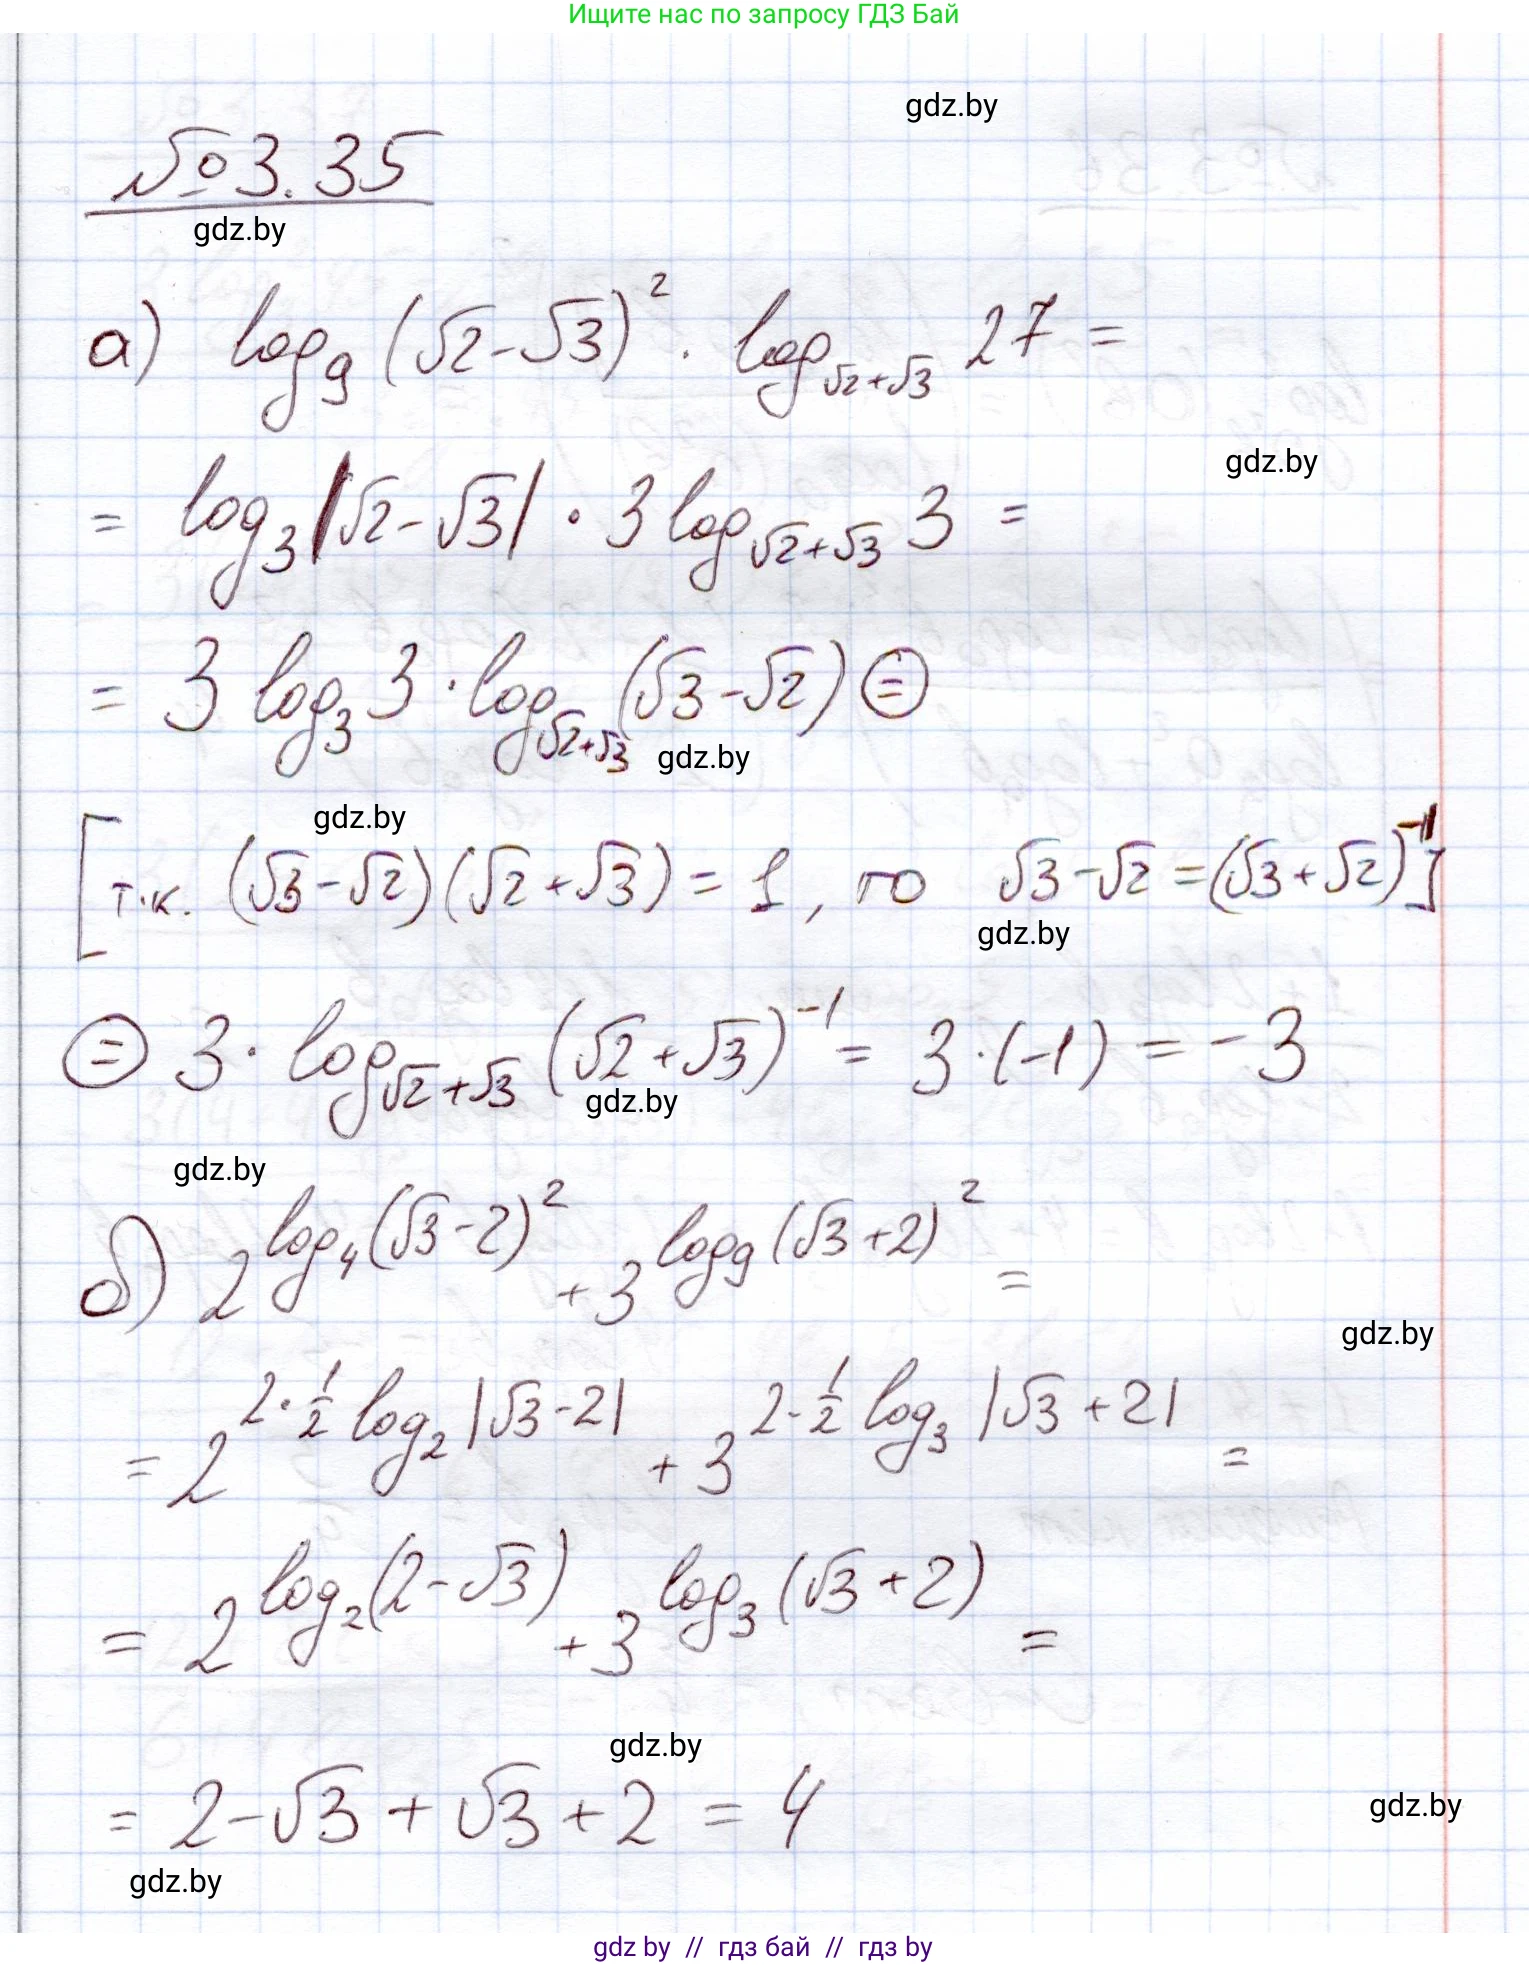 Ищите нас по запросу ГДЗ Бай
gdz.by
№3.35
gdz.by
а) log₉ (√2-√3)² · log_{√2+√3} 27 =
gdz.by
= log₃ |√2-√3| · 3 log_{√2+√3} 3 =
= 3 log₃ 3 · log_{√2+√3} (√3-√2) ⊜
gdz.by
gdz.by
[т.к. (√3-√2)(√2+√3) = 1, то √3-√2 = (√3+√2)⁻¹]
gdz.by
⊜ 3 · log_{√2+√3} (√2+√3)⁻¹ = 3·(-1) = -3
gdz.by
gdz.by
б) 2^{log₄(√3-2)²} + 3^{log₉(√3+2)²} =
gdz.by
= 2^{2·1/2 log₂|√3-2|} + 3^{2·1/2 log₃|√3+2|} =
= 2^{log₂(2-√3)} + 3^{log₃(√3+2)} =
gdz.by
= 2-√3 + √3+2 = 4
gdz.by
gdz.by
gdz by // гдз бай // гдз by